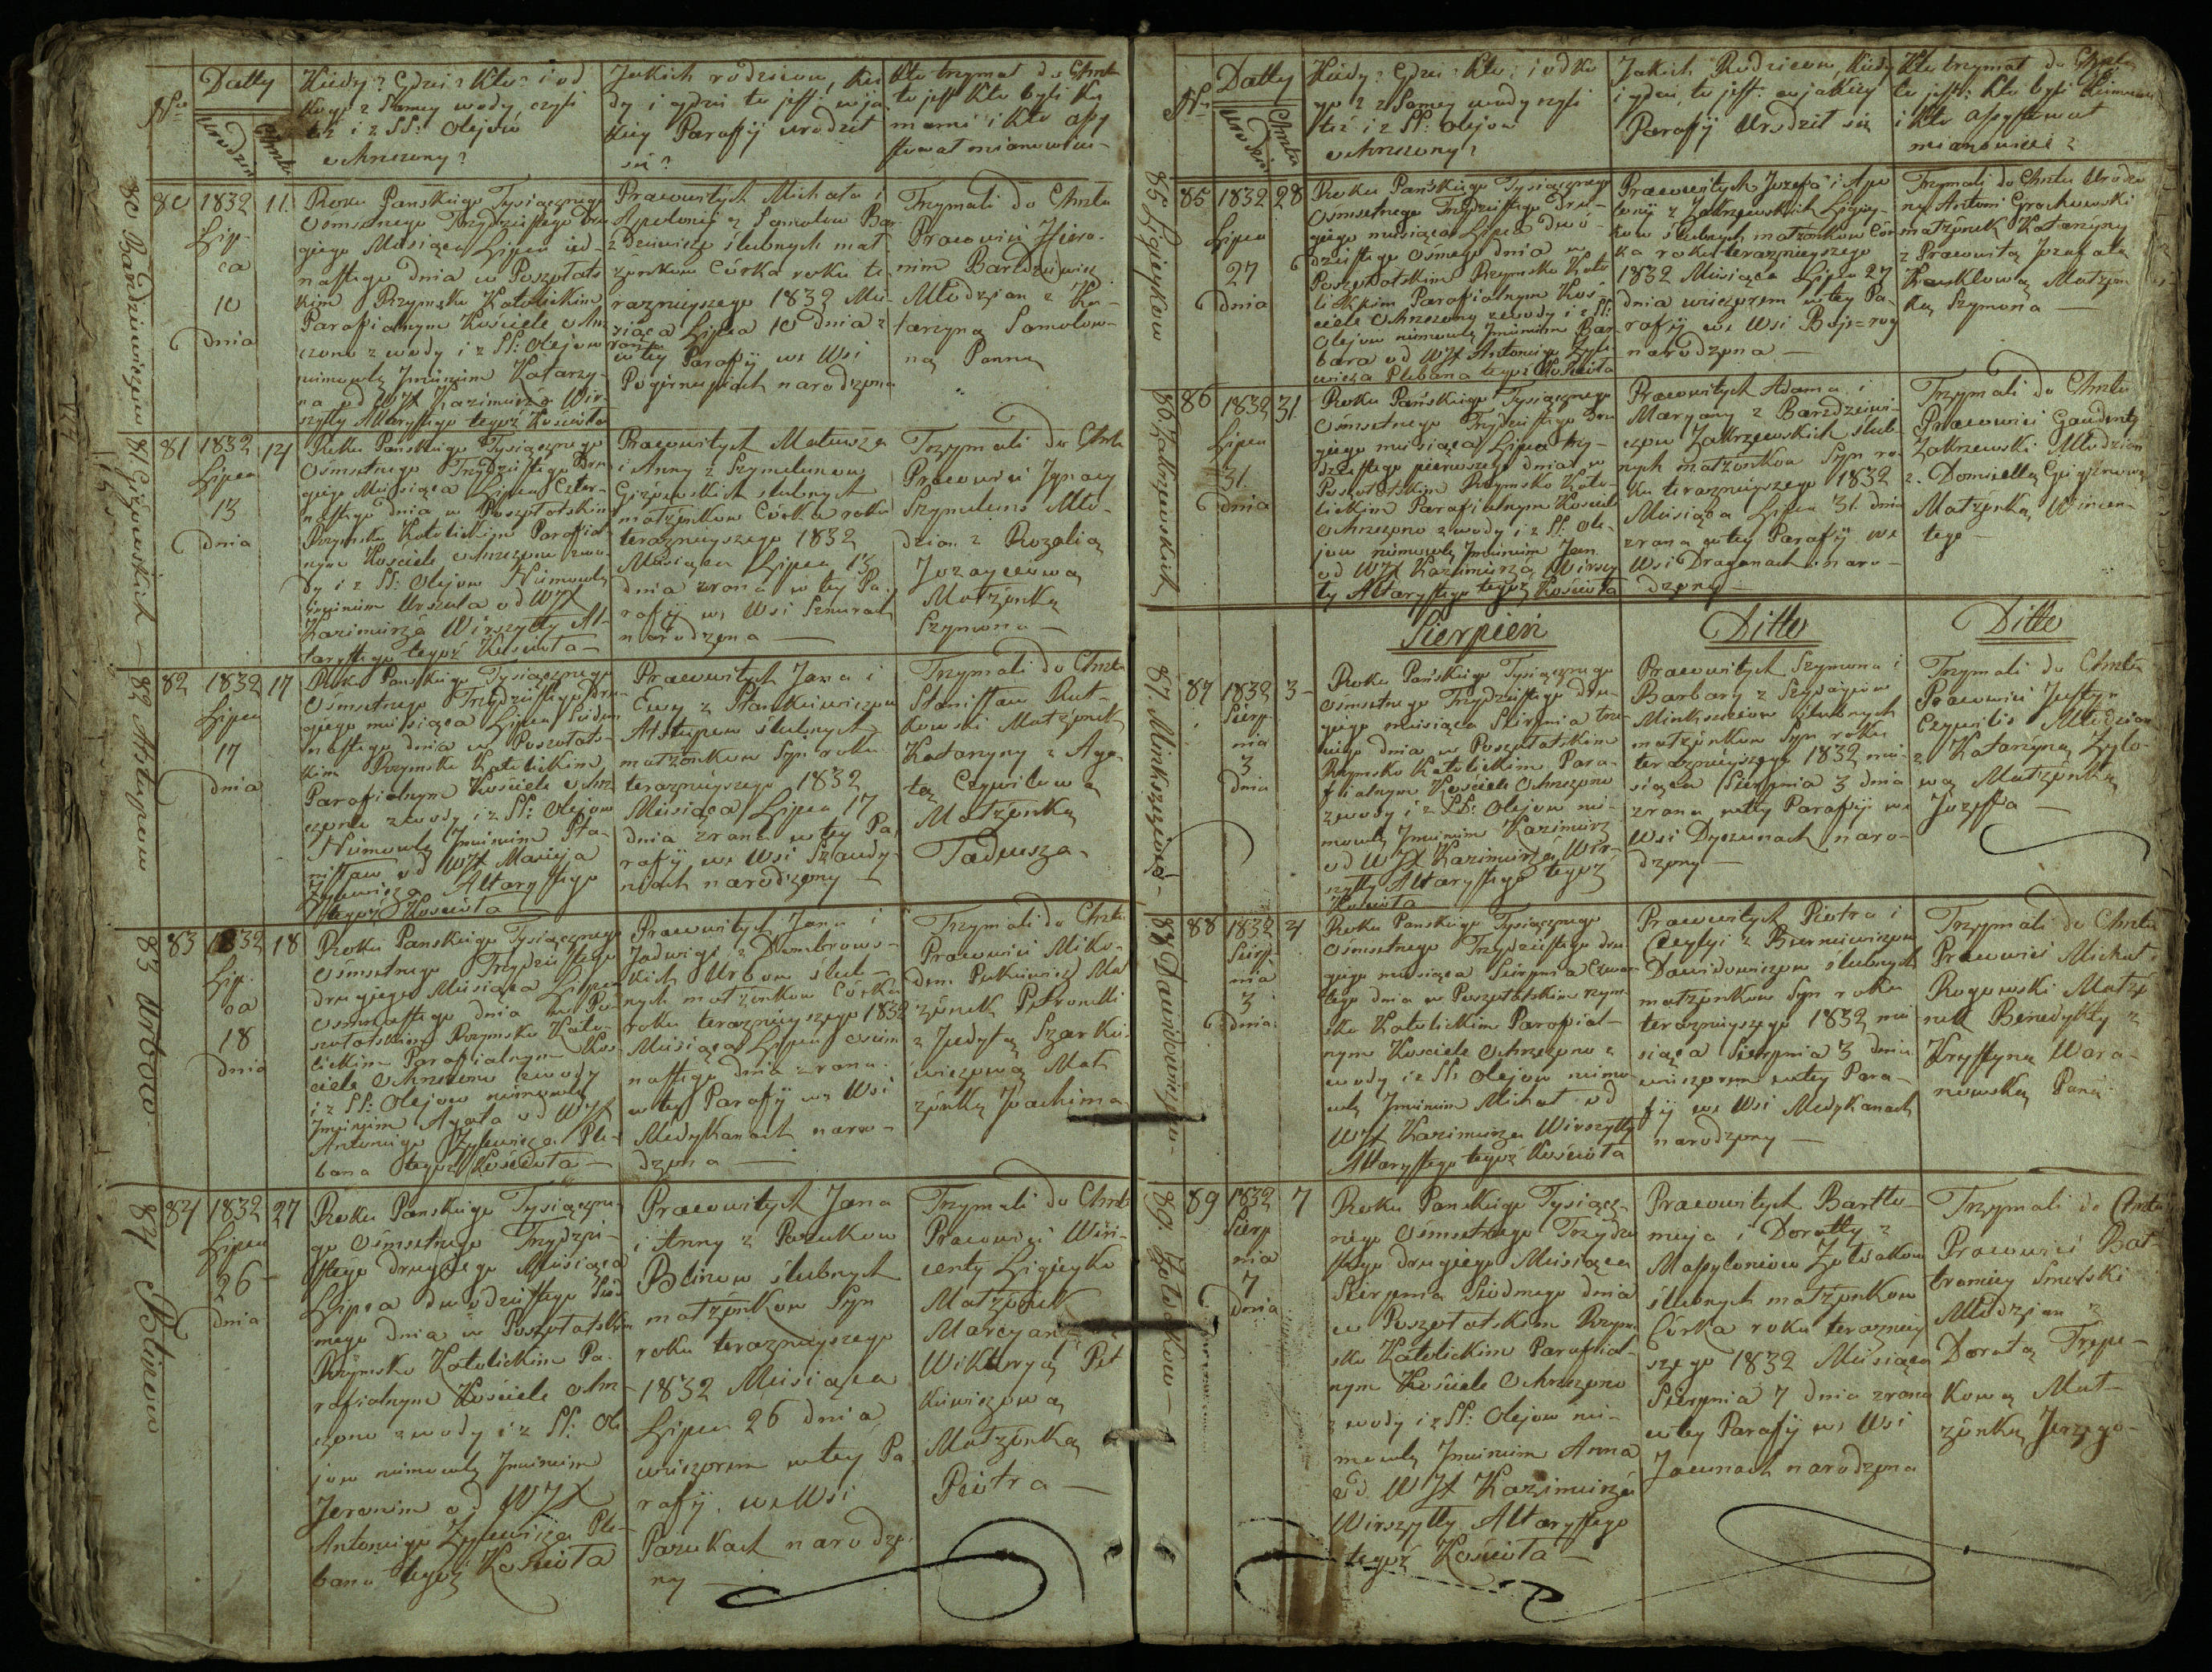 Nro
Datty
Urodzin
Chrztu
Kiedy? Gdzie? Kto? i od
kogo? z Samey wody czyli
też i z SS: Olejów
ochrzczony?
Jakich rodziców, kie
dy i gdzie to jest: w ja
kiey Parafij urodził
się?
Kto trzymał do Chrztu
to jest kto byli Ku
mami i kto assy
stował mianowicie
80 Bardziewiczow
80
1832
Lip-
ca
10
dnia
11.
Roku Panskiego Tysiącznego
Osmsetnego Trzydziestego Dru
giego Miesiąca Lipca jed-
nastego dnia w Poszołats
kim Rzymsko Katolickim
Parafialnym Kościele ochrz
czono z wody i z SS: Olejow
niemowlę Imieniem Katarzy-
na od WJX Kazimierza Wir-
szyłły Altarystego tegoż Kościoła
Prawowitych Michała i
Apolonij z Samolow Bar
dziewiczow ślubnych mał
żonkow Córka roku te
razniejszego 1832 Mie-
siąca Lipca 10 dnia z
rana
w tey Parafij we Wsi
Pogirnupiach narodzona
Trzymali do Chrztu
Pracowici Hiero-
nim Bardziewicz
Młodzian z Ka-
tarzyną Samolow-
ną Panną
81 Giżowskich
81
1832
Lipca
13
dnia
14
Roku Panskiego Tysiącznego
Osmsetnego Trzydziestego Dru
giego Miesiąca Lipca Czter-
nastego dnia w Poszołatskim
Rzymsko Katolickim Parafial
nym Kościele ochrzczono z wo-
dy i z SS: Olejow Niemowlę
Imieniem Urszula od WJX
Kazimierza Wirszyłły Al-
tarystego tegoż Kościoła
Pracowitych Mateusza
i Anny z Szymelunow
Giżowskich ślubnych
małżonkow Córka roku
terazniejszego 1832
Miesiąca Lipca 13
dnia zrana w tey Pa-
rafij we Wsi Sznurach
narodzona
Trzymali do Chrztu
Pracowici Ignacy
Szymelunis Mło-
dzian z Rozalią
Jozayciową
Małżonką
Szymona
82 Atstupow
82
1832
Lipca
17
dnia
17
Roku Panskiego Tysiącznego
Osmsetnego Trzydziestego Dru
giego miesiąca Lipca Siedm
nastego dnia w Poszołats-
kim Rzymsko Katolickim
Parafialnym Kościele ochrz
czono z wody i z SS: Olejow
Niemowlę Imieniem Sta-
nisław od WJX Macieja
Altarystego
tegoż Kościoła
Pracowitych Jana i
Ewy z Stankiewiczow
Atstupow ślubnych
małżonkow Syn roku
terazniejszego 1832
Miesiąca Lipca 17
dnia zrana w tey Pa
rafij we Wsi Szaudy-
niach narodzony
Trzymali do Chrztu
Stanisław Rut-
kowski Małżonek
Katarzyny z Aga-
tą Czywilową
Małżonką
Tadeusza
83 Urbow
83
1832
Lip-
ca
18
dnia
18
Roku Panskiego Tysiącznego
Osmsetnego Trzydziestego
drugiego Miesiąca Lipca
Osmnastego dnia w Po-
szołatskim Rzymsko Kato-
lickim Parafialnym Koś
ciele ochrzczono z wody
i z SS: Olejow niemowlę
Imieniem Agata od WJX
Antoniego Żylewicza Ple-
bana tegoż Kościoła
Pracowitych Jana i
Jadwigi z Dombrows-
kich Urbow ślub-
nych małżonkow Córka
roku terazniejszego 1832
Miesiąca Lipca osm
nastego dnia zrana
w tey Parafij we Wsi
Medykanach naro-
dzona
Trzymali do Chrztu
Pracowici Miko-
dem Petkiewicz Mał
żonek Petronelli
z Judytą Szarkie-
wiczową Mał
żonką Joachima
84 Blinow
84
1832
Lipca
26
dnia
27
Roku Panskiego Tysiączne-
go Osmsetnego Trzydzie-
stego drugiego Miesiąca
Lipca dwudziestego Siod
mego dnia w Poszołatskim
Rzymsko Katolickim Pa-
rafialnym Kościele ochrz-
czono z wody i z SS: Ole
jow niemowlę Imieniem
Jeronim od WJX
Antoniego Żylewicza Ple-
bana tegoż Kościoła
Pracowitych Jana
i Anny z Parukow
Blinow ślubnych
małżonkow Syn
roku terazniejszego
1832 Miesiąca
Lipca 26 dnia
wieczorem w tey Pa
rafij we Wsi
Parukach narodzo-
ny
Trzymali do Chrztu
Pracowici Win-
centy Ligieyko
Małżonek
Marcyanny z
Wiktoryą Pet
kiewiczową
Małżonką
Piotra
Nro
Datty
Urodzin
Chrztu
Kiedy? Gdzie? Kto? i od ko
go? z Samey wody czyli
też i z SS: Olejow
ochrzczony?
Jakich Rodziców, kiedy
i gdzie, to jest: w jakiey
Parafij Urodził się
Kto trzymał do Chrztu
to jest: kto byli Kumami
i kto assystował
mianowicie?
85 Ligieykow
85
1832
Lipca
27
dnia
28
Roku Pańskiego Tysiącznego
Osmsetnego Trzydziestego dru-
giego miesiąca Lipca dwó-
dziestego Osmego dnia w
Poszołatskim Rzymsko Kato
lickim Parafialnym Koś-
ciele Ochrzczony z wody i z SS:
Olejow niemowlę Imieniem Bar-
bara od WJX Antoniego Żyle-
wicza Plebana tegoż Kościoła
Pracowitych Jozefa i Apo
lonij z Zakrzewskich Ligiey-
kow ślubnych małżonkow Cór
ka roku terazniejszego
1832 Miesiąca Lipca 27
dnia wieczorem w tey Pa-
rafij we Wsi Bojs=rog
narodzona
Trzymali do Chrztu Urodzo
ny Antoni Grochowski
małżonek Katarzyny
z Pracowitą Jozefatą
Kauklową Małżon
ką Szymona
86 Zakrzewskich
86
1832
Lipca
31.
dnia
31.
Roku Pańskiego Tysiącznego
Osmsetnego Trzydziestego Dru
giego miesiąca Lipca trzy-
dziestego pierwszego dnia w
Poszołatskim Rzymsko Kato-
lickim Parafialnym Kościele
Ochrzczono z wody i z SS: Ole-
jow niemowlę Imieniem Jan
od WJX Kazimierza Wirszył
ły Altarystego tegoż Kościoła
Pracowitych Adama i
Maryany z Bardziewi-
czow Zakrzewskich ślub
nych małżonkow Syn ro-
ku terazniejszego 1832
Miesiąca Lipca 31. dnia
zrana w tey Parafij we
Wsi Draganach naro-
dzony
Trzymali do Chrztu
Pracowici Gaudenty
Zakrzewski Młodzian
z Domicellą
Małżonką Wincen-
tego
Sierpień
Ditto
Ditto
87. Minkszeciow
87
1832
Sierp-
nia
3
dnia
3
Roku Pańskiego Tysiącznego
Osmsetnego Trzydziestego dru-
giego miesiąca Sierpnia trze
ciego dnia w Poszołatskim
Rzymsko Katolickim Para-
fialnym Kościele Ochrzczono
z wody i z SS: Olejow nie-
mowlę Imieniem Kazimierz
od WJX Kazimierza Wir-
szyłły Altarystego tegoż
Kościoła
Pracowitych Szymona i
Barbary z
Minkszeciow ślubnych
małżonkow Syn roku
terazniejszego 1832 mie-
siąca Sierpnia 3 dnia
zrana w tey Parafij we
Wsi Dyszunach naro-
dzony
Trzymali do Chrztu
Pracowici Justyn
Czywilis Młodzian
z Katarzyną Żylo-
wą Małżonką
Jozefa
88 Dawidowiczow
88
1832
Sierp-
nia
3
dnia
4
Roku Panskiego Tysiącznego
Osmsetnego Trzydziestego dru
giego miesiąca Sierpnia Czwar
tego dnia w Poszołatskim Rzym-
sko Katolickim Parafial-
nym Kościele Ochrzczono z
wody i z SS: Olejow niemo
wlę Imieniem Michał od
WJX Kazimierza Wirszyłły
Altarystego tegoż Kościoła
Pracowitych Piotra i
Cecylyi z Bierniewiczow
Dawidowiczow ślubnych
małżonkow Syn roku
terazniejszego 1832 mie
siąca Sierpnia 3 dnia
wieczorem w tey Para-
fij we Wsi Medykanach
narodzony
Trzymali do Chrztu
Pracowici Michał
Rogowski Małżo
nek Benedykty z
Krystyną Wara-
nowską Panną
89. Zołodkow
89
1832
Sierp
nia
7
dnia
7
Roku Panskiego Tysiącz-
nego Osmsetnego Trzydzie
stego drugiego Miesiąca
Sierpnia Siodmego dnia
w Poszołatskim Rzym-
sko Katolickim Parafial-
nym Kościele Ochrzczono
z wody i z SS: Olejow nie-
mowlę Imieniem Anna
od WJX Kazimierza
Wirszyłły Altarystego
tegoż Kościoła
Pracowitych Bartło-
mieja i Dorotty z
ślubnych małżonkow
Córka roku terazniej
szego 1832 Miesiąca
Sierpnia 7 dnia zrana
w tey Parafij we Wsi
Jawnach narodzona
Trzymali do Chrztu
Pracowici Bar-
tłomiey Smolski
Młodzian z
Dorotą Trepe-
kową Mał-
żonką Jerzego